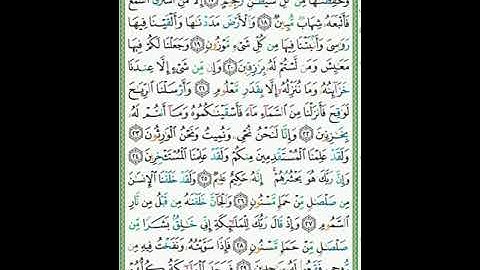 وَحَفِظْنَٰهَا مِن كُلِّ شَيْطَٰنٍ رَّجِيمٍ ﴿١٧﴾ إِلَّا مَنِ ٱسْتَرَقَ ٱلسَّمْعَ
فَأَتْبَعَهُۥ شِهَابٌ مُّبِينٌ ﴿١٨﴾ وَٱلْأَرْضَ مَدَدْنَٰهَا وَأَلْقَيْنَا فِيهَا
رَوَٰسِىَ وَأَنۢبَتْنَا فِيهَا مِن كُلِّ شَىْءٍ مَّوْزُونٍ ﴿١٩﴾ وَجَعَلْنَا لَكُمْ فِيهَا
مَعَٰيِشَ وَمَن لَّسْتُمْ لَهُۥ بِرَٰزِقِينَ ﴿٢٠﴾ وَإِن مِّن شَىْءٍ إِلَّا عِندَنَا
خَزَآئِنُهُۥ وَمَا نُنَزِّلُهُۥٓ إِلَّا بِقَدَرٍ مَّعْلُومٍ ﴿٢١﴾ وَأَرْسَلْنَا ٱلرِّيَٰحَ
لَوَٰقِحَ فَأَنزَلْنَا مِنَ ٱلسَّمَآءِ مَآءً فَأَسْقَيْنَٰكُمُوهُ وَمَآ أَنتُمْ لَهُۥ
بِخَٰزِنِينَ ﴿٢٢﴾ وَإِنَّا لَنَحْنُ نُحْىِۦ وَنُمِيتُ وَنَحْنُ ٱلْوَٰرِثُونَ ﴿٢٣﴾
وَلَقَدْ عَلِمْنَا ٱلْمُسْتَقْدِمِينَ مِنكُمْ وَلَقَدْ عَلِمْنَا ٱلْمُسْتَـْٔخِرِينَ ﴿٢٤﴾
وَإِنَّ رَبَّكَ هُوَ يَحْشُرُهُمْ ۚ إِنَّهُۥ حَكِيمٌ عَلِيمٌ ﴿٢٥﴾ وَلَقَدْ خَلَقْنَا ٱلْإِنسَٰنَ
مِن صَلْصَٰلٍ مِّنْ حَمَإٍ مَّسْنُونٍ ﴿٢٦﴾ وَٱلْجَآنَّ خَلَقْنَٰهُ مِن قَبْلُ مِن نَّارِ
ٱلسَّمُومِ ﴿٢٧﴾ وَإِذْ قَالَ رَبُّكَ لِلْمَلَٰٓئِكَةِ إِنِّى خَٰلِقٌۢ بَشَرًا مِّن
صَلْصَٰلٍ مِّنْ حَمَإٍ مَّسْنُونٍ ﴿٢٨﴾ فَإِذَا سَوَّيْتُهُۥ وَنَفَخْتُ فِيهِ مِن
رُّوحِى فَقَعُوا۟ لَهُۥ سَٰجِدِينَ ﴿٢٩﴾ فَسَجَدَ ٱلْمَلَٰٓئِكَةُ كُلُّهُمْ